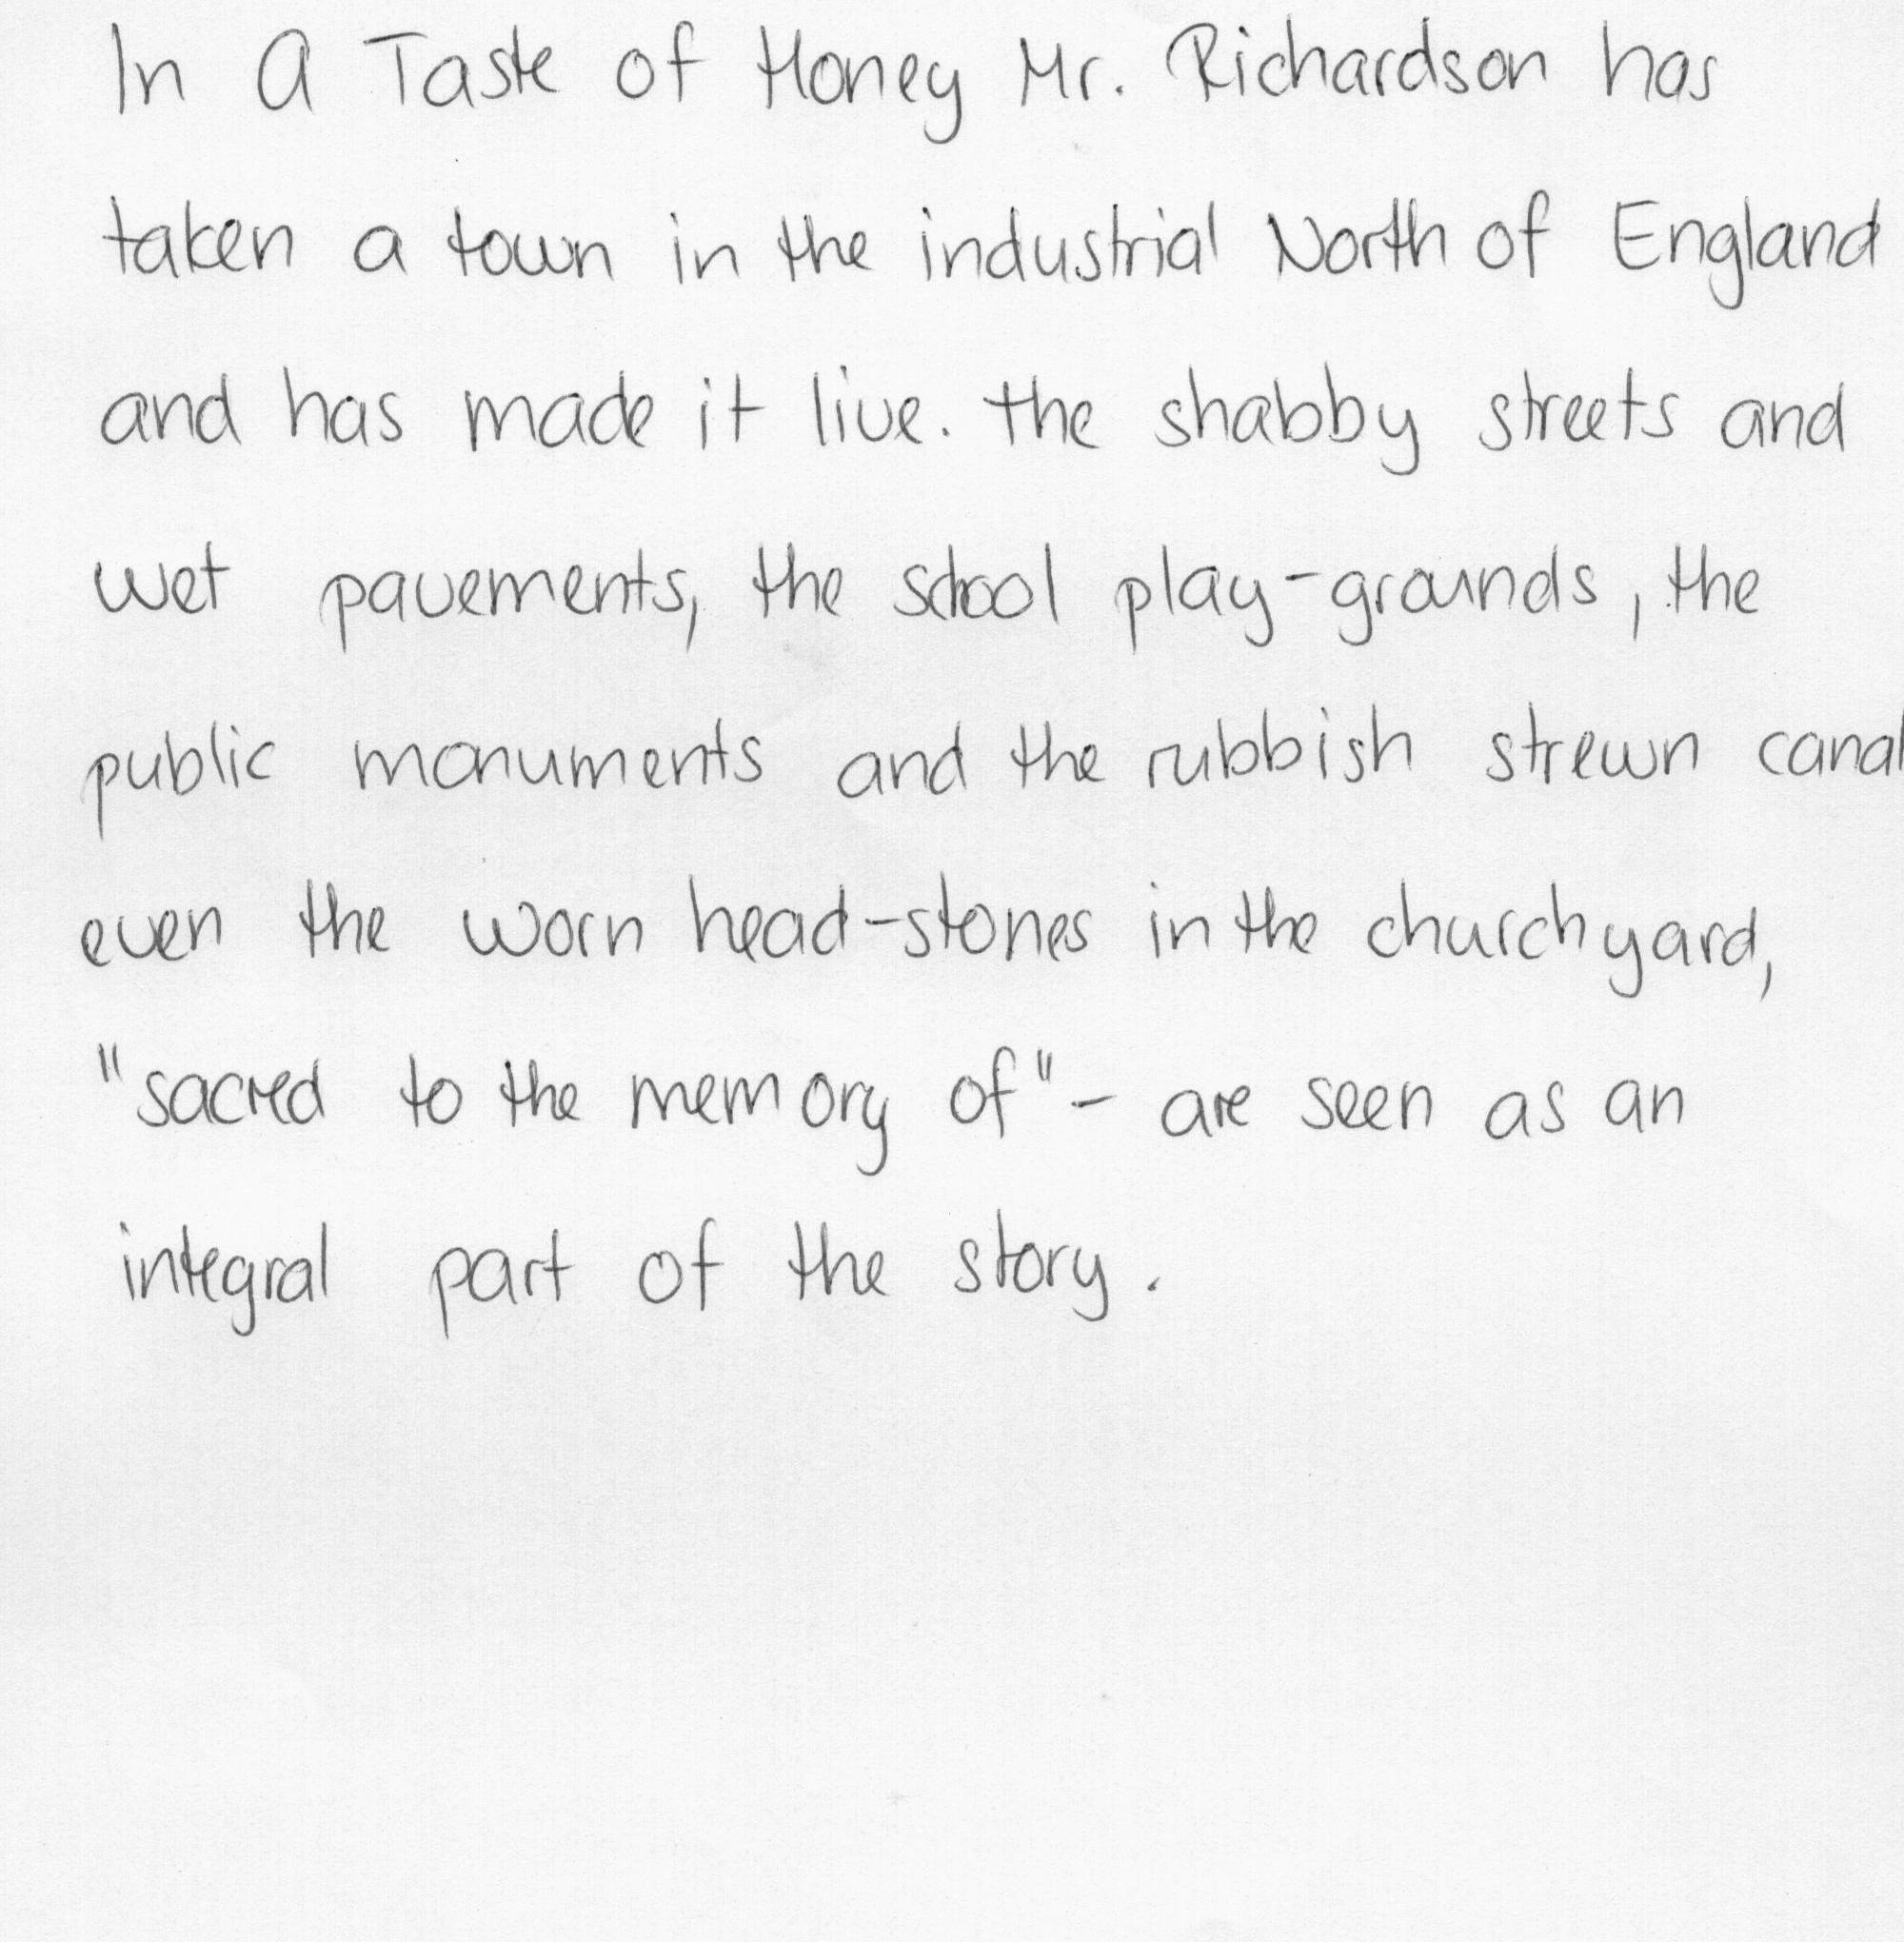 In A Taste of Honey Mr. Richardson has
taken a town in the industrial North of England
and has made it live. the shabby streets and
wet pavements, the school play-grounds, the
public monuments and the rubbish strewn canal
even the worn head-stones in the churchyard,
"sacred to the memory of" - are seen as an
integral part of the story.